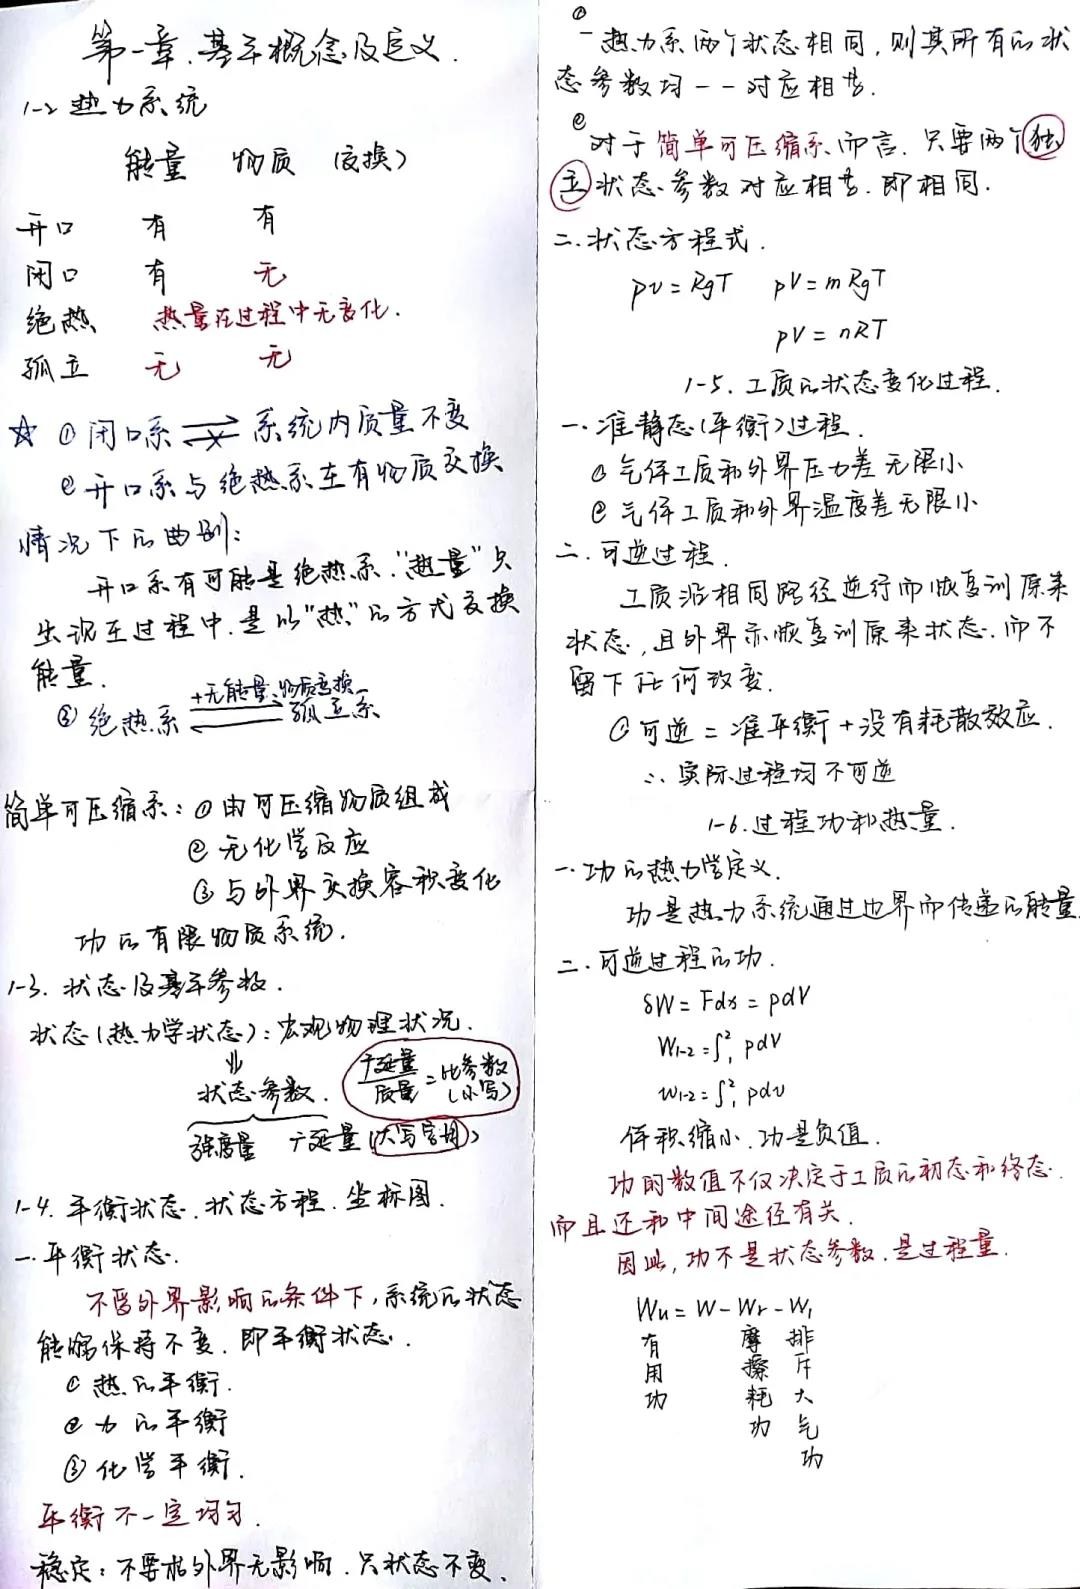 第一章.基本概念及定义.
1-2 热力系统
能量 物质 (交换)
开口 有 有
闭口 有 无
绝热 热量在过程中无变化.
孤立 无 无
☆ ①闭口系 ⇌ 系统内质量不变
②开口系与绝热系在有物质交换
情况下的曲别:
开口系有可能是绝热系."热量"只
出现在过程中.是以"热"的方式交换
能量.
+无能量、物质交换
③绝热系 孤立系
简单可压缩系:①由可压缩物质组成
②无化学反应
③与外界交换容积变化
功的有限物质系统.
1-3.状态及基本参数.
状态(热力学状态):宏观物理状况.
⇓
状态参数. 广延量/质量=比参数(小写)
强度量 广延量(大写字母)
1-4.平衡状态.状态方程.坐标图.
一.平衡状态.
不受外界影响的条件下,系统的状态
能够保持不变.即平衡状态.
①热的平衡.
②力的平衡
③化学平衡.
平衡不一定均匀.
稳定:不要求外界无影响.只状态不变.
①热力系两个状态相同,则其所有的状
态参数均一一对应相等.
②对于简单可压缩系而言.只要两个独
立状态参数对应相等.即相同.
二.状态方程式.
pv=RgT pV=mRgT
pV=nRT
1-5.工质的状态变化过程.
一.准静态(平衡)过程.
①气体工质和外界压力差无限小
②气体工质和外界温度差无限小
二.可逆过程.
工质沿相同路径逆行而恢复到原来
状态,且外界亦恢复到原来状态.而不
留下任何改变.
①可逆=准平衡+没有耗散效应.
∴实际过程均不可逆
1-6.过程功和热量.
一.功的热力学定义.
功是热力系统通过边界而传递的能量.
二.可逆过程的功.
δW=Fdx=pdV
W₁₋₂=∫₁² pdV
w₁₋₂=∫₁² pdv
体积缩小.功是负值.
功的数值不仅决定于工质的初态和终态.
而且还和中间途径有关.
因此,功不是状态参数.是过程量.
Wu=W-Wr-W₁
有用功 摩擦耗功 排斥大气功